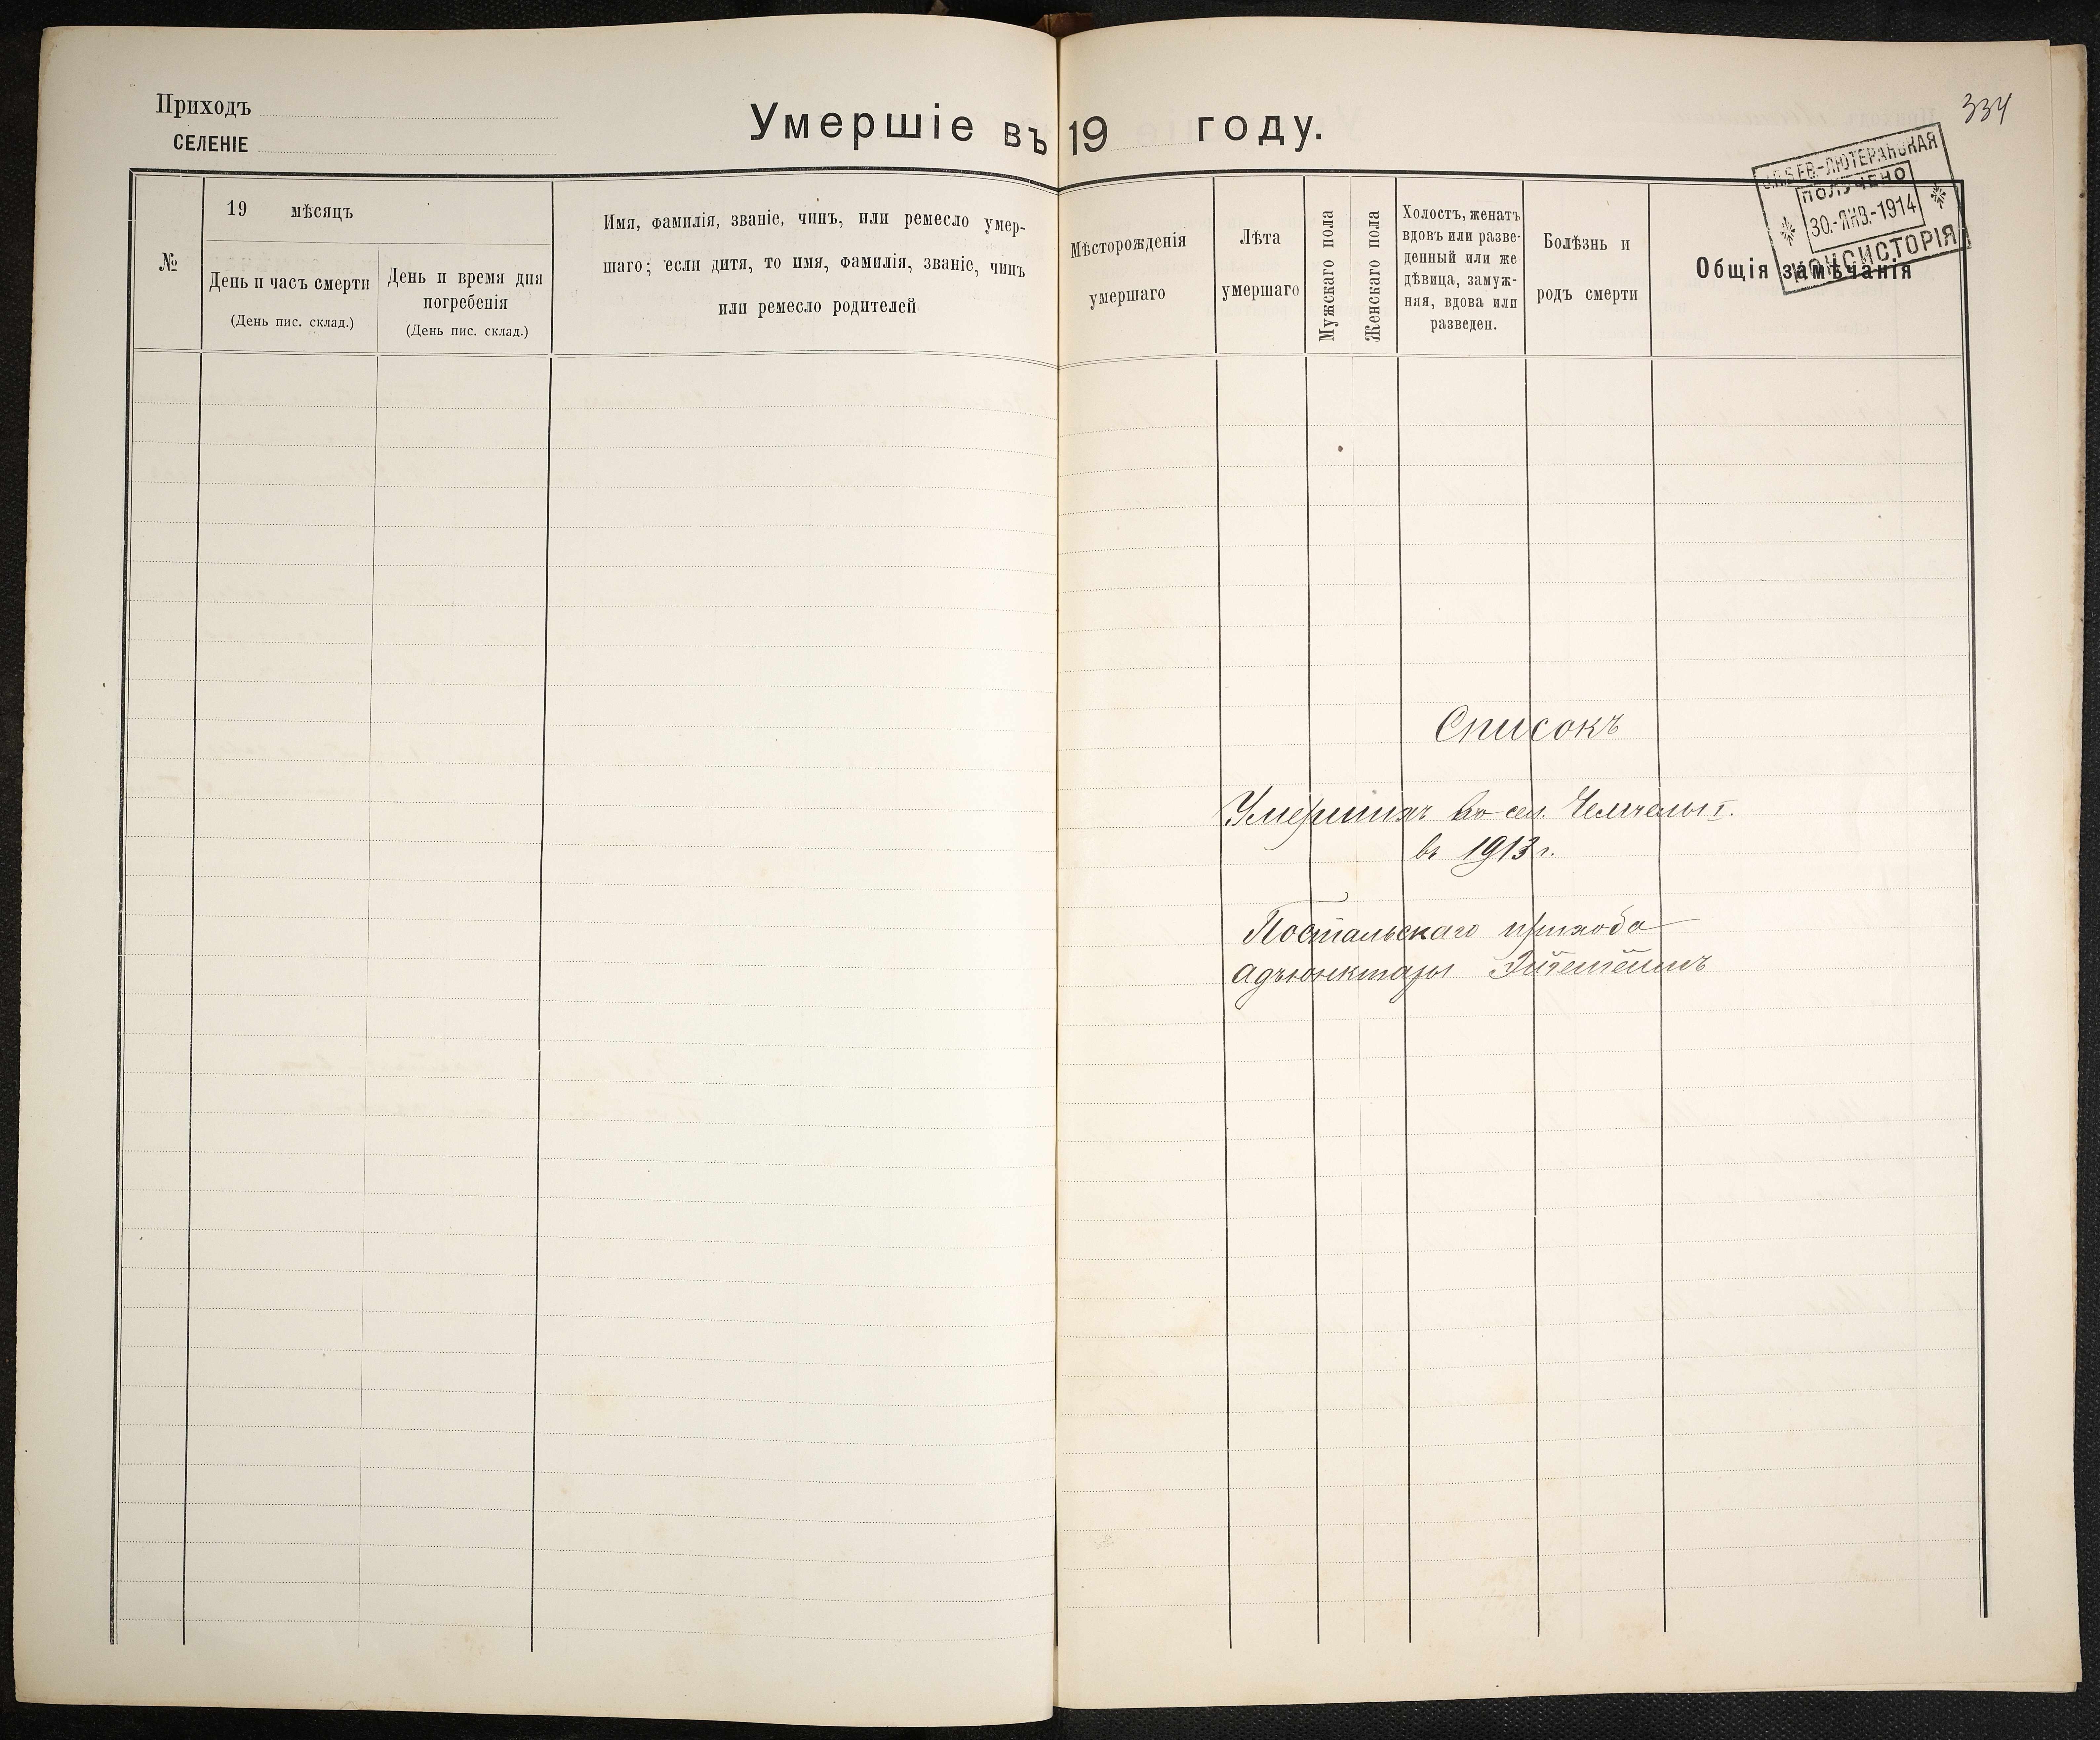 Приходъ
СЕЛЕНІЕ
Умершіе въ 19 году.
334
С.П.Б. ЕВ.-ЛЮТЕРАНСКАЯ
ПОЛУЧЕНО
30.-ЯНВ.-1914
КОНСИСТОРІЯ
№
19 мѣсяцъ
День и часъ смерти
(День пис. склад.)
День и время дня
погребенія
(День пис. склад.)
Имя, фамилія, званіе, чинъ, или ремесло умер-
шаго; если дитя, то имя, фамилія, званіе, чинъ
или ремесло родителей
Мѣсторожденія
умершаго
Лѣта
умершаго
Мужскаго пола
Женскаго пола
Холостъ, женатъ
вдовъ или разве-
денный или же
дѣвица, замуж-
няя, вдова или
разведен.
Болѣзнь и
родъ смерти
Общія замѣчанія
Списокъ
Умершихъ въ сел. Чемчелы I.
въ 1913 г.
Постальскаго прихода
адъюнктуры